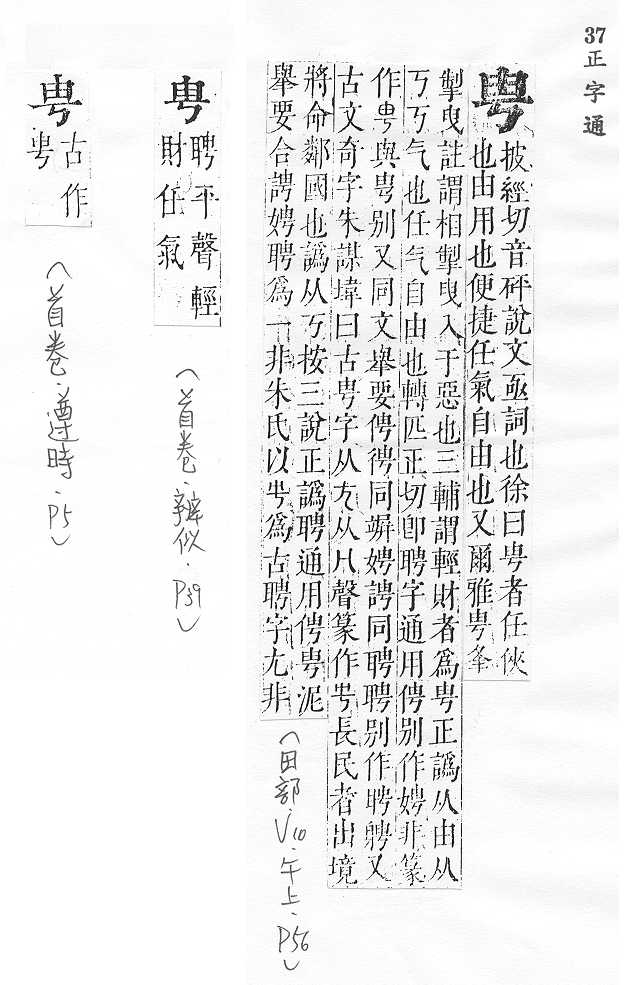 37正字通
甹
披經切音砰說文亟詞也徐曰甹者任俠
也由用也便捷任氣自由也又爾雅甹夆
掣曳註謂相掣曳入于惡也三輔謂輕財者爲甹正譌从由从
丂丂气也任气自由也轉匹正切卽聘字通用俜别作娉非篆
作甹與甹别又同文舉要俜德同竮娉謣同聘聘别作聘騁又
古文奇字朱謀㙔曰古甹字从尢从𠘧聲篆作甹長民者出境
將命鄰國也譌从丂按三說正譌聘通用俜甹泥
舉要合謣娉聘爲一非朱氏以甹爲古聘字尢非
(田部.V10.午上.P56)
甹
聘平聲輕
財任氣
(首卷.辨似.P39)
甹
古作
甹
(首卷.遵時.P5)